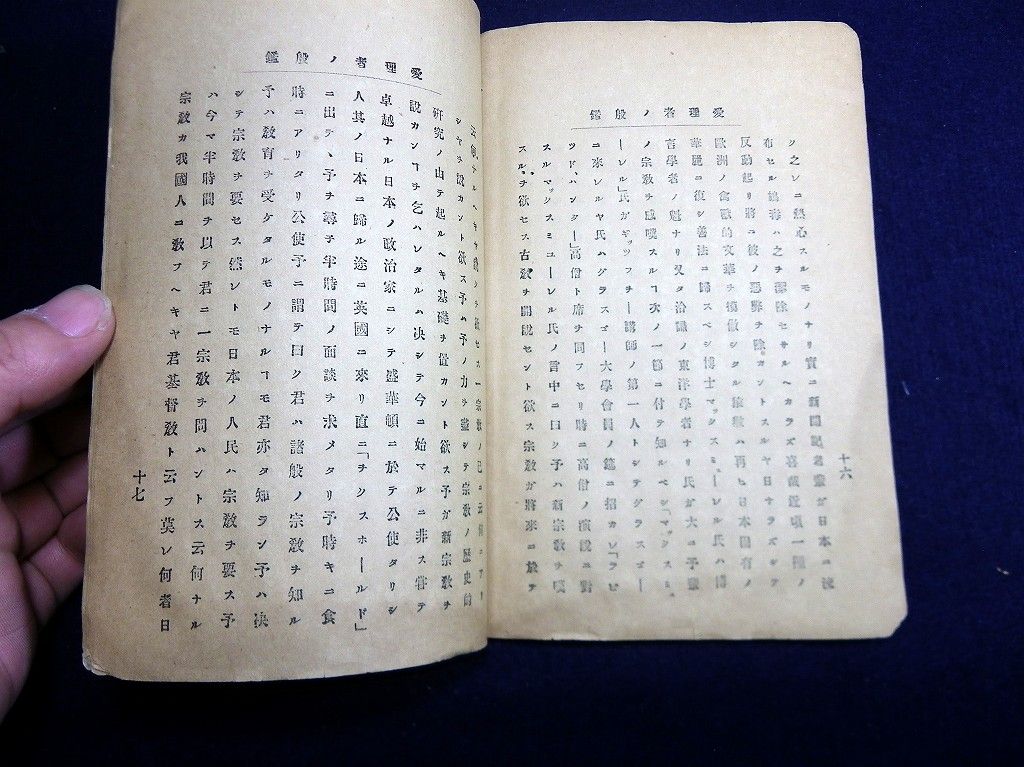 愛理者ノ般鑑
ク之レニ熱心スルモノナリ實ニ新聞記者輩ガ日本ニ流
布セル Loss害毒ハ之ヲ掃除セサルヘカラズ喜哉近頃一種ノ
反動起リ將ニ彼ノ惡弊ヲ除カントスルヤ日ナラズシテ
歐洲ノ禽獸的文華ヲ摸倣シタル 敎ハ再ヒ日本固有ノ
華麗ニ復シ善法ニ歸スベシ博士マックスミューレル氏ハ博
言學者ノ魁ナリ又タ洽識ノ東洋學者ナリ氏ガ大ニ予輩
ノ宗敎ヲ感嘆スルヿ次ノ一節ニ付テ知ルベシ「マックスミュ
ーレル」氏ガギッフヲード講師ノ第一人トシテグラスゴー
ニ來レルヤ氏ハグラスゴー大學會員ノ筵ニ招カレ「ラビ
ッド、ハンター」高僧ト席ヲ同フセリ時ニ高僧ノ演說ニ對
スルマックスミューレル氏ノ言中ニ曰ク予ハ新宗敎ヲ
スルヲ欲セス古敎ヲ開說セント欲ス宗敎ガ將來ニ於テ
十六
愛理者ノ般鑑
欲セス一宗敎ノ已ニ云何ニアリ
シヤヲ說カント欲ス予ハ予ノ力ヲ盡シテ宗敎ノ歷史的
硏究ノ由テ起ルヘキ基礎ヲ置カント欲ス予ガ新宗敎ヲ
說カンヿヲ乞ハレタルハ决シテ今ニ始マルニ非ス甞テ
卓越ナル日本ノ政治家ニシテ盛華頓ニ於テ公使タリシ
人其ノ日本ニ歸ル途ニ英國ニ來リ直ニ「ヲクスホールド」
ニ出テ、予ヲ尋子半時間ノ面談ヲ求メタリ予時キニ食
時ニアリタリ公使予ニ謂テ曰ク君ハ諸般ノ宗敎ヲ知ル
予ハ敎育ヲ受ケタルモノナルヿモ君亦タ知ラン予ハ决
シテ宗敎ヲ要セス然レトモ日本ノ人民ハ宗敎ヲ要ス予
ハ今マ半時間ヲ以テ君ニ一宗敎ヲ問ハントス云何ナル
宗敎カ我國人ニ敎フヘキヤ君基督敎ト云フ莫レ何者日
十七